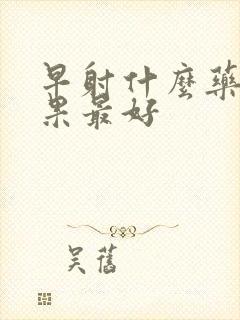 早射什麼藥
果最好
吴舊